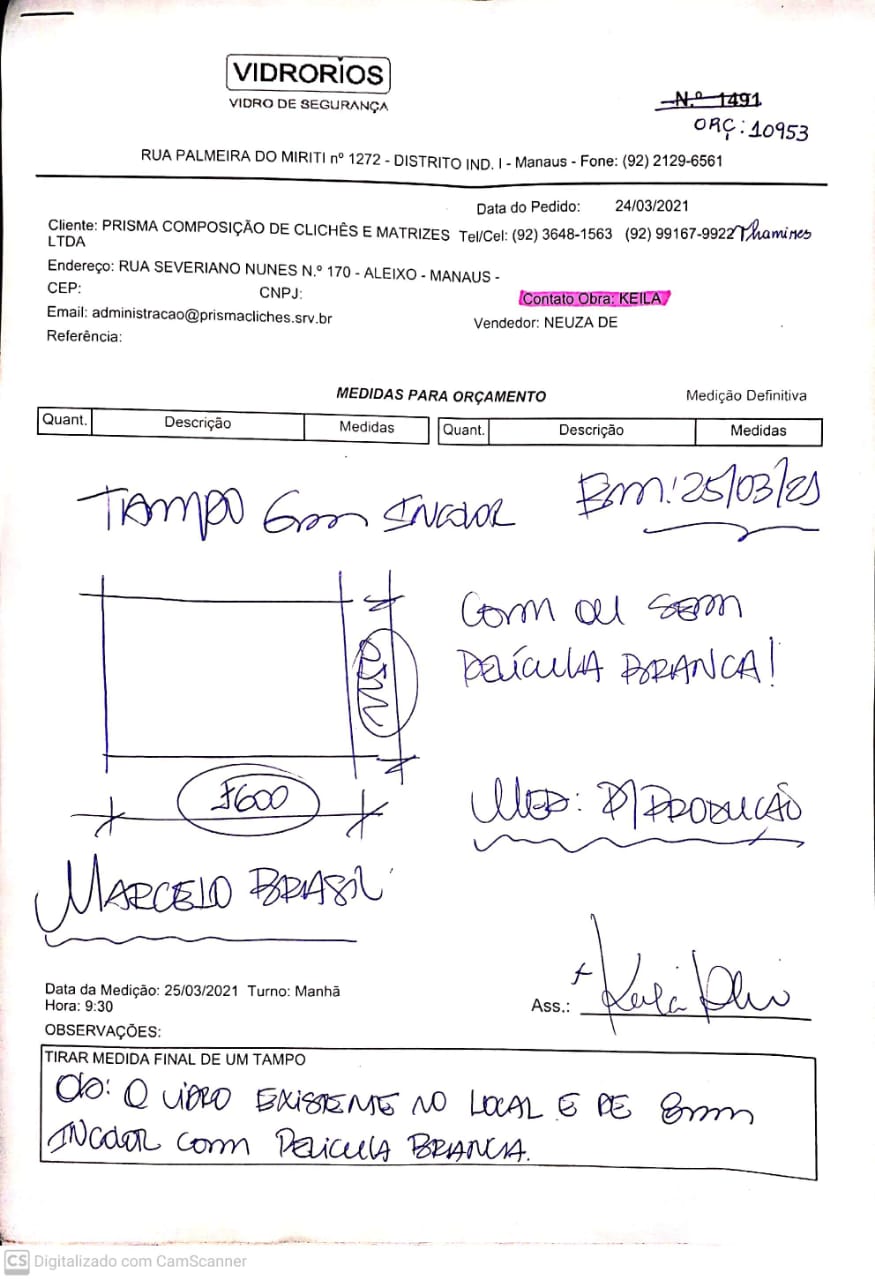 VIDRORIOS
VIDRO DE SEGURANÇA
N.º 1491
ORÇ: 10953
RUA PALMEIRA DO MIRITI nº 1272 - DISTRITO IND. I - Manaus - Fone: (92) 2129-6561
Data do Pedido: 24/03/2021
Cliente: PRISMA COMPOSIÇÃO DE CLICHÊS E MATRIZES Tel/Cel: (92) 3648-1563 (92) 99167-9922 Thamires
LTDA
Endereço: RUA SEVERIANO NUNES N.º 170 - ALEIXO - MANAUS -
CEP: CNPJ: Contato Obra: KEILA
Email: administracao@prismacliches.srv.br Vendedor: NEUZA DE
Referência:
MEDIDAS PARA ORÇAMENTO Medição Definitiva
Quant. Descrição Medidas Quant. Descrição Medidas
TAMPO 6mm INCOLOR Em: 25/03/21
COM OU SEM
PELÍCULA BRANCA!
1600
MED: P/ PRODUÇÃO
MARCELO BRASIL
Data da Medição: 25/03/2021 Turno: Manhã
Hora: 9:30 Ass.:
OBSERVAÇÕES:
TIRAR MEDIDA FINAL DE UM TAMPO
Obs: O VIDRO EXISTENTE NO LOCAL E DE 8mm
INCOLOR COM PELICULA BRANCA.
CS Digitalizado com CamScanner